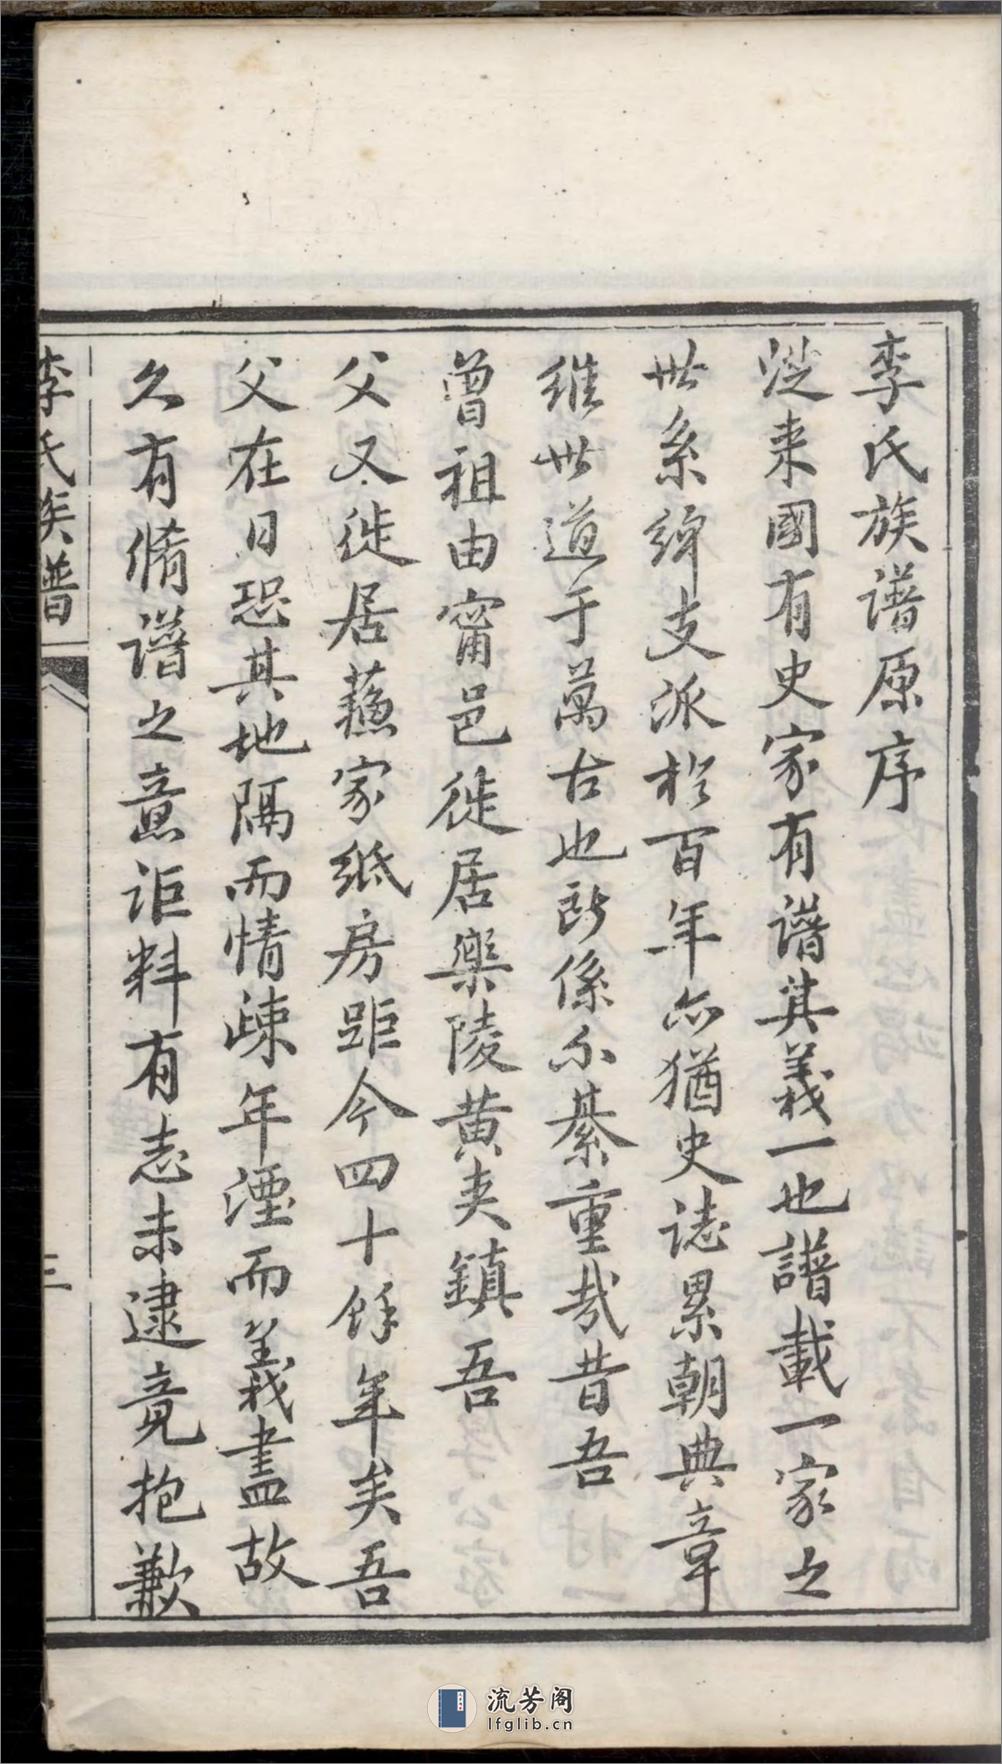 李氏族譜原序
從来國有史家有譜其義一也譜載一家之
世系綿支派於百年亦猶史誌累朝典章
維世道于萬古也所係不綦重哉昔吾
曾祖由甯邑徙居樂陵黄夾鎮吾
父又徙居蘓家紙房距今四十餘年矣吾
父在日恐其地隔而情疎年湮而義盡故
久有脩譜之意詎料有志未逮竟抱歉
李氏族譜
三
流芳阁
lfglib.cn